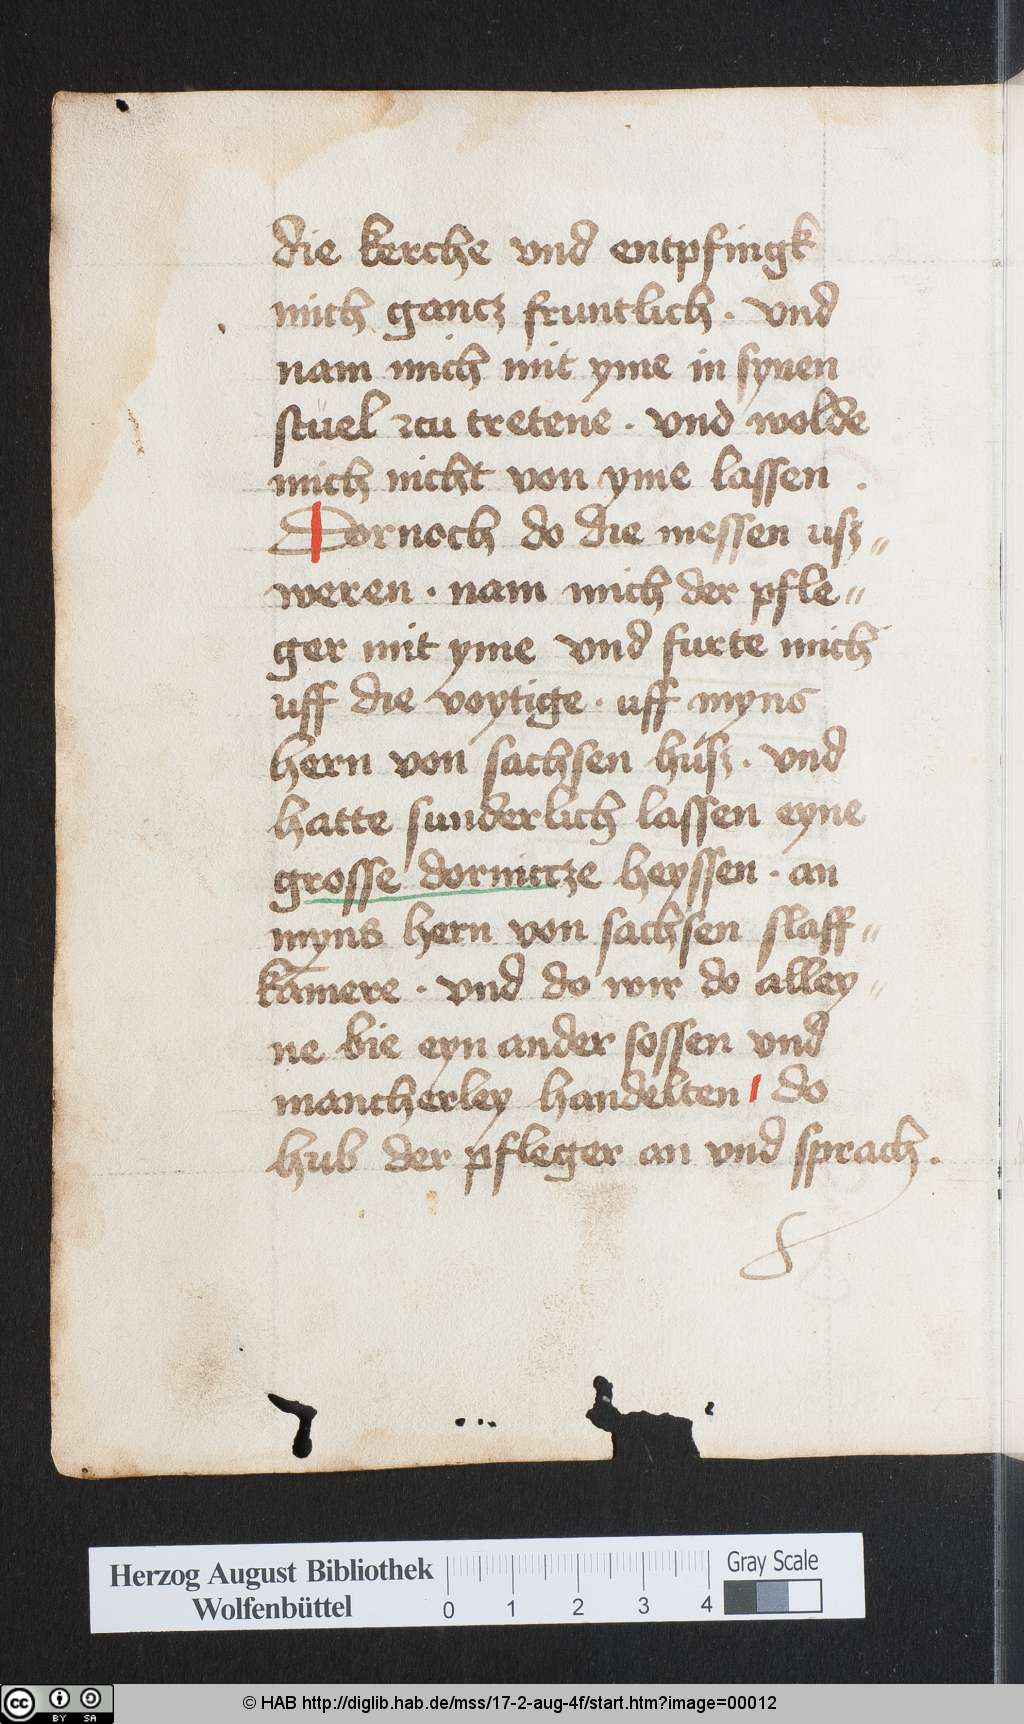 die kerche vnd entpfingk
mich gancz fruntlich · vnd
nam mich mit yme in synen
stüel zcu tretene · vnd wolde
mich nicht von yme lassen .
Dornoch do die messen usz〃
weren · nam mich der pfle〃
ger mit yme vnd furte mich
uff die voytige · uff myns
hern von sachsen husz · vnd
hatte sunderlich lassen eyne
grosse dornittze heyssen · an
myns hern von sachsen slaff〃
kāmere · vnd do wir do alley〃
ne bie eyn ander sossen vnd
mancherley handelten do
hub der pfleger an vnd sprach .
Herzog August Bibliothek
Wolfenbüttel
0 1 2 3 4
Gray Scale
cc BY SA
© HAB http://diglib.hab.de/mss/17-2-aug-4f/start.htm?image=00012